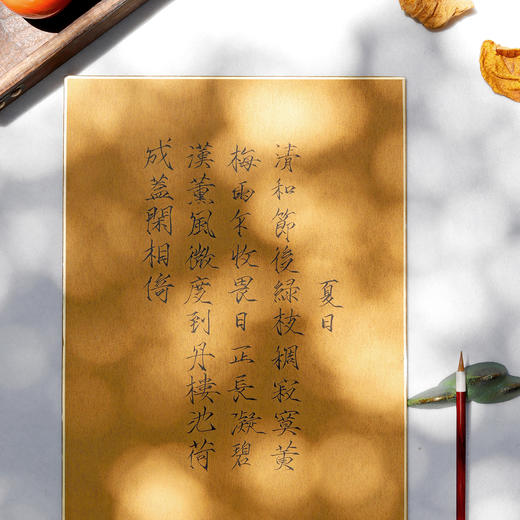 夏日
清和節後緑枝稠寂寞黄
梅雨乍收畏日正長凝碧
漢薰風微度到丹樓池荷
成蓋閑相倚